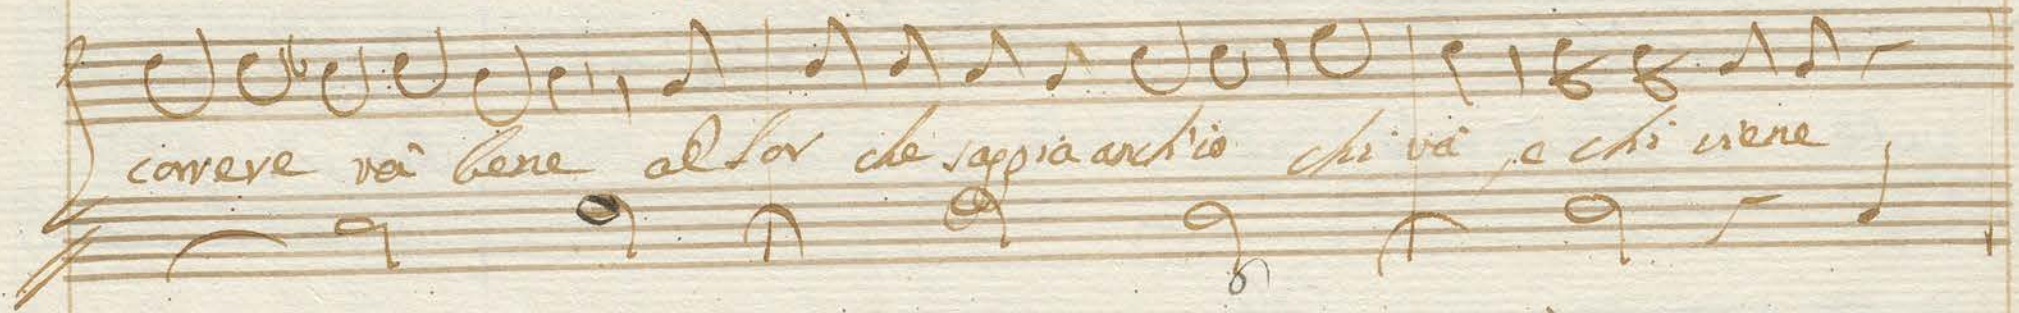 correre và bene al sor che sappia anch'io chi và, e chi viene
6